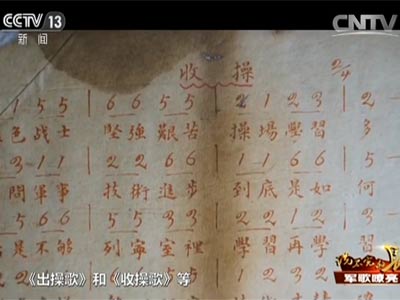 CCTV 13
新闻
CNTV
收操 2/4
1 5 5 | 6 6 5 5 | 2 1 2 3 | 2 —
色战士 坚強艱苦 操場學習 多
3 — 1 1 | 2 2 6 6 | 1 — 1 6 6 | 5 —
問軍事 技術進步 到底是如 何
6 5 5 | 5 5 3 3 | 2 2 1 2 | 3 —
是不够 列寧室裡 學習再學 習
《出操歌》和《收操歌》等
军歌嘹亮